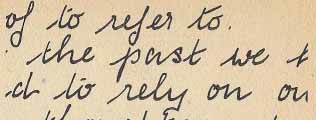 of to refer to.
the past we
d to rely on